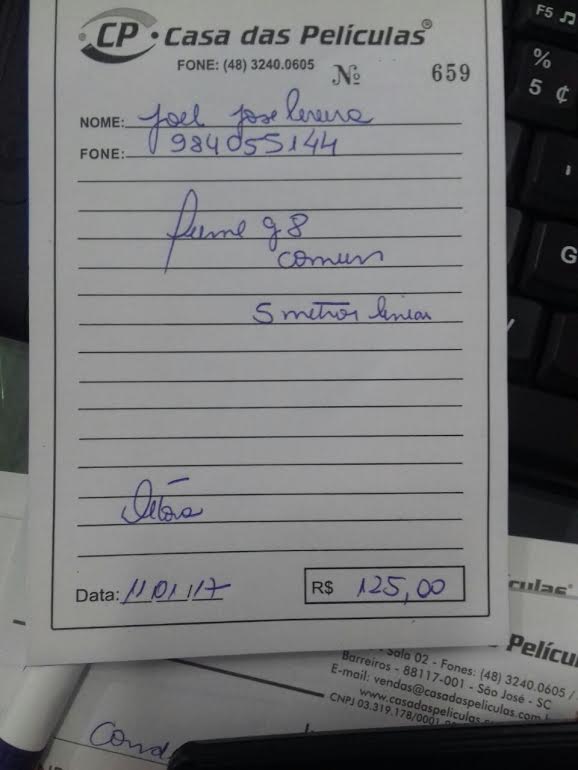 CP Casa das Películas®
FONE: (48) 3240.0605 Nº 659
NOME: Joel Jose
FONE: 984055144
fume g8
comum
5 metros linear
Data: 11/01/17 R$ 125,00
F5
%
5 ¢
G
culas®
Pelícu
Sala 02 - Fones: (48) 3240.0605 /
Barreiros - 88117-001 - São José - SC
E-mail: vendas@casadaspeliculas
www.casadaspeliculas.com.b
CNPJ 03.319.178/0001
Cond